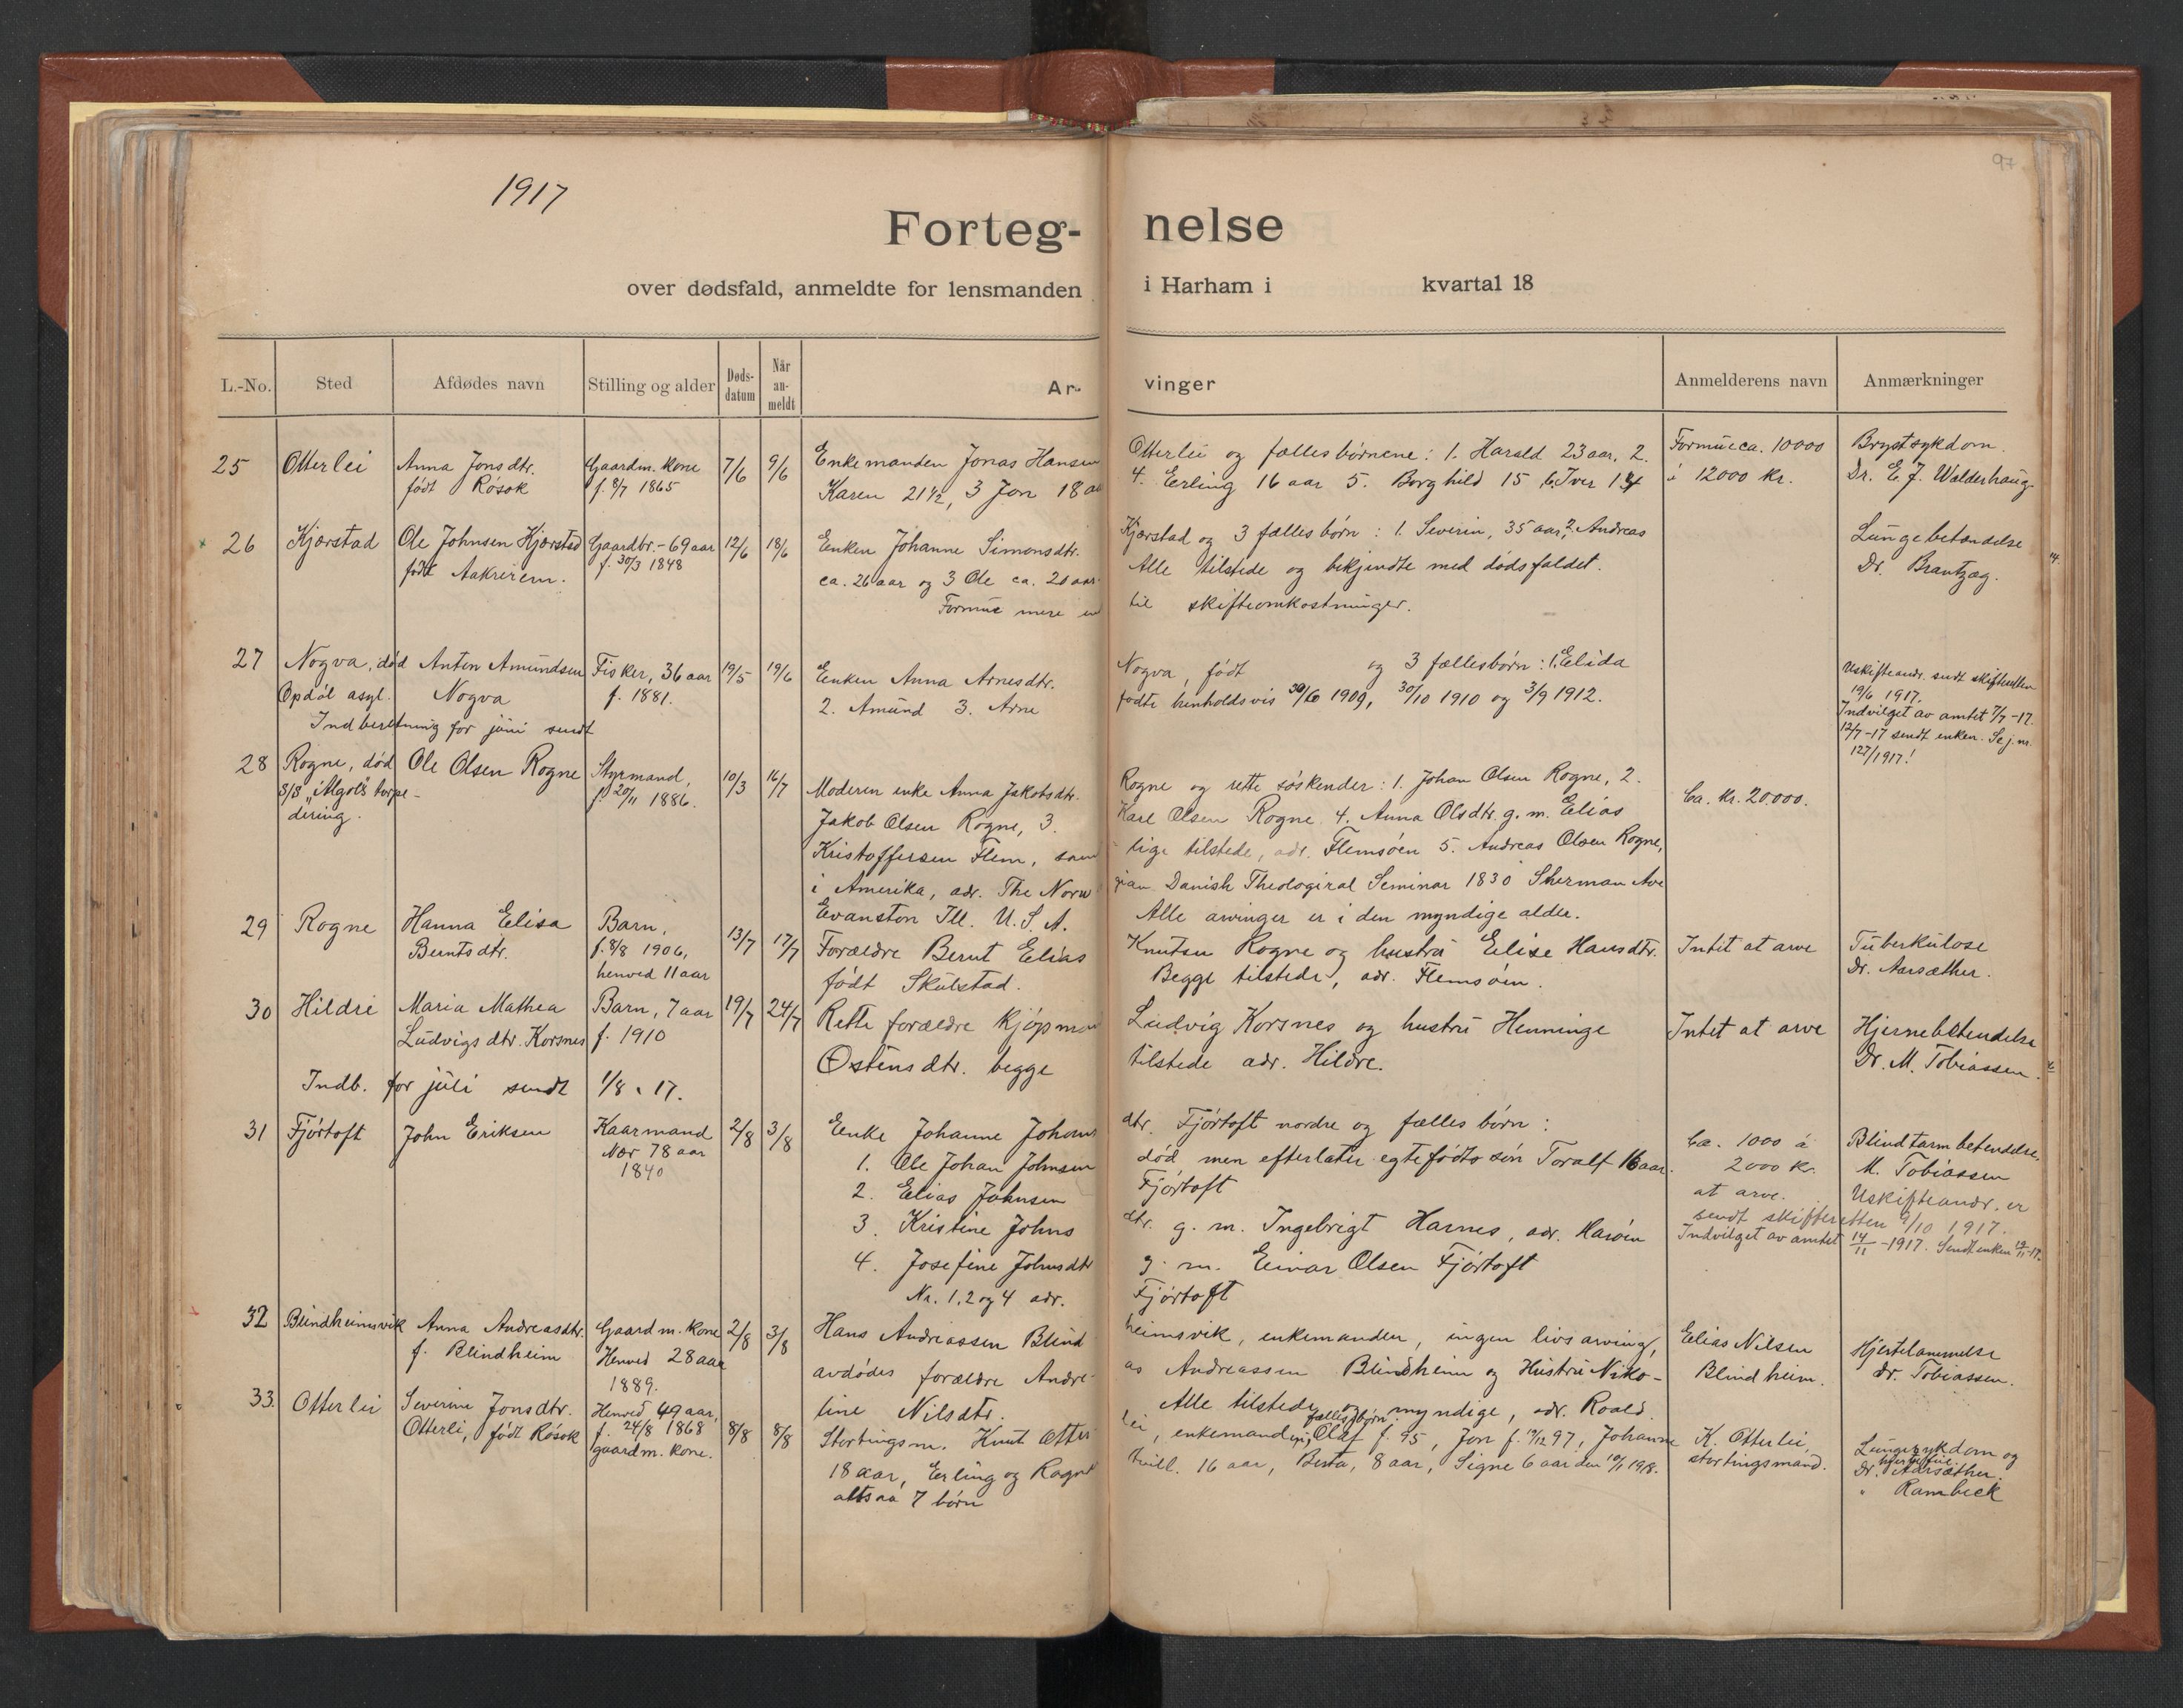 97
1917
Forteg- nelse
over dødsfald, anmeldte for lensmanden i Harham i kvartal 18
L.-No. Sted Afdødes navn Stilling og alder Døds-datum Når an-meldt Ar- vinger Anmelderens navn Anmærkninger
25 Otterlei Anna Jonsdtr. Gaardm. kone 7/6 9/6 Enkemanden Jonas Hansen Otterlei og fællesbørnene: 1. Harald 23 aar, 2. Formue ca. 10000 Brystsykdom.
født Røsok f. 8/7 1865 Karen 21 1/2, 3 Jon 18 aar 4. Erling 16 aar 5. Borghild 15 6. Iver 14 à 12000 kr. Dr. E. J. Walderhaug
26 Kjærstad Ole Johnsen Kjærstad Gaardbr. - 69 aar 12/6 18/6 Enken Johanne Simonsdtr. Kjærstad og 3 fælles børn: 1. Severin, 35 aar, 2. Andreas Lungebetændelse
født Aakrerem. f. 30/3 1848 ca. 26 aar og 3 Ole ca. 20 aar. Alle tilstede og bekjendte med dødsfaldet. Dr. Brantzæg.
Formue mere end til skifteomkostninger.
27 Nogva, død Anton Amundsen Fisker, 36 aar 19/5 19/6 Enken Anna Arnesdtr. Nogva, født og 3 fællesbørn: 1. Elida Uskifteandr. sendt skifteretten
Opdøl asyl. Nogva f. 1881. 2. Amund 3. Arne fødte henholdsvis 1909, 30/10 1910 og 3/9 1912. 19/6 1917.
Indberetning for juni sendt Indvilget av amtet 7/7-17.
12/7-17 sendt enken. Se j.nr.
127/1917!
28 Rogne, død Ole Olsen Rogne Styrmand, 10/3 16/7 Moderen enke Anna Jakobsdtr. Rogne og rette søskender: 1. Johan Olsen Rogne, 2. Ca. kr. 20.000.
S/S "Algol's" torpe- f. 20/11 1886. Jakob Olsen Rogne, 3. Karl Olsen Rogne 4. Anna Olsdtr. g. m. Elias
dering. Kristoffersen Flem, sam- lige tilstede, adr. Flemsøen 5. Andreas Olsen Rogne,
i Amerika, adr. The Norwe- gian Danish Theological Seminar 1830 Sherman Ave
Evanston Ill. U. S. A. Alle arvinger er i den myndige alder.
29 Rogne Hanna Elisa Barn, 13/7 17/7 Forældre Bernt Elias Knutsen Rogne og hustru Elise Hansdtr. Intet at arve Tuberkulose
Berntsdtr. f. 8/8 1906, født Skulstad. Begge tilstede, adr. Flemsøen. Dr. Aarsæther.
henved 11 aar
30 Hildre Maria Mathea Barn, 7 aar 19/7 24/7 Rette forældre kjøpmand Ludvig Korsnes og hustru Henninge Intet at arve Hjernebetendelse
Ludvigsdtr. Korsnes f. 1910 Østensdtr. begge tilstede adr. Hildre. Dr. M. Tobiassen.
Indb. for juli sendt 1/8 . 17.
31 Fjørtoft John Eriksen Kaarmand 2/8 3/8 Enke Johanne Johans dtr. Fjørtoft nordre og fælles børn: Ca. 1000 à Blindtarmbetendelse,
Nær 78 aar 1. Ole Johan Johnsen død men efterlater egtefødte søn Toralf 16 aar. 2000 kr. M. Tobiassen
1840 2. Elias Johnsen Fjørtoft at arve. Uskifteandr. er
3. Kristine Johns dtr. g. m. Ingebrigt Harnes, adr. Harøen sendt skifteretten 9/10 1917.
4. Josefine Johnsdtr g. m. Einar Olsen Fjørtoft Indvilget av amtet 14/11-1917. Sendt enken 19/11-17.
Nr. 1, 2 og 4 adr. Fjørtoft
32 Blindheimsvik Anna Andreasdtr. Gaardm. kone 2/8 3/8 Hans Andreassen Blind- heimsvik, enkemanden, ingen livsarving, Elias Nilsen Hjertelammelse
f. Blindheim Henved 28 aar avdødes forældre Andre- as Andreassen Blindheim og Hustru Niko- Blindheim. Dr. Tobiassen.
1889. line Nilsdtr. Alle tilstede og myndige, adr. Roald.
33. Otterlei Severine Jonsdtr. Henved 49 aar, 8/8 8/8 Stortingsm. Knut Otter- lei, enkemand og fællesbørn: Olaf f. 95, Jon f. 97, Johanne K. Otterlei, Lungesykdom og
Otterlei, født Røsok f. 24/8 1868 18 aar, Erling og Ragna tvill. 16 aar, Berta, 8 aar, Signe 6 aar den 10/1 1918. stortingsmand. Dr. Aarsæther.
gaardm. kone. altsaa 7 børn " Rambeck